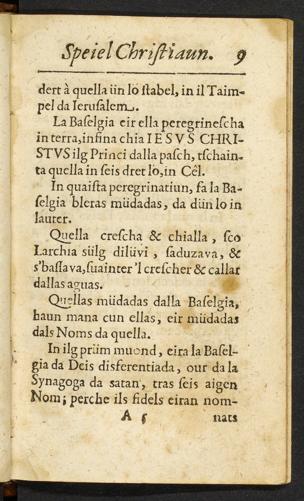 Speiel Christiaun. 9
dert à quella ün lö stabel, in il Taim-
pel da Ierusalem.
La Baselgia eir ella peregrinescha
in terra, infina chia IESVS CHRI-
STVS ilg Princi dalla pasch, tschain-
ta quella in seis dret lö, in Cêl.
In quaista peregrinatiun, fa la Ba-
selgia bleras müdadas, da dün lo in
lauter.
Quella crescha & chialla, sco
Larchia sülg dilüvi, saduzava, &
s'bassava, suainter 'l crescher & callar
dallas aguas.
Quellas müdadas dalla Baselgia,
haun mana cun ellas, eir müdadas
dals Noms da quella.
In ilg prüm muond, eira la Basel-
gia da Deis disferentiada, our da la
Synagoga da satan, tras seis aigen
Nom; perche ils fidels eiran nom-
A 5 nats